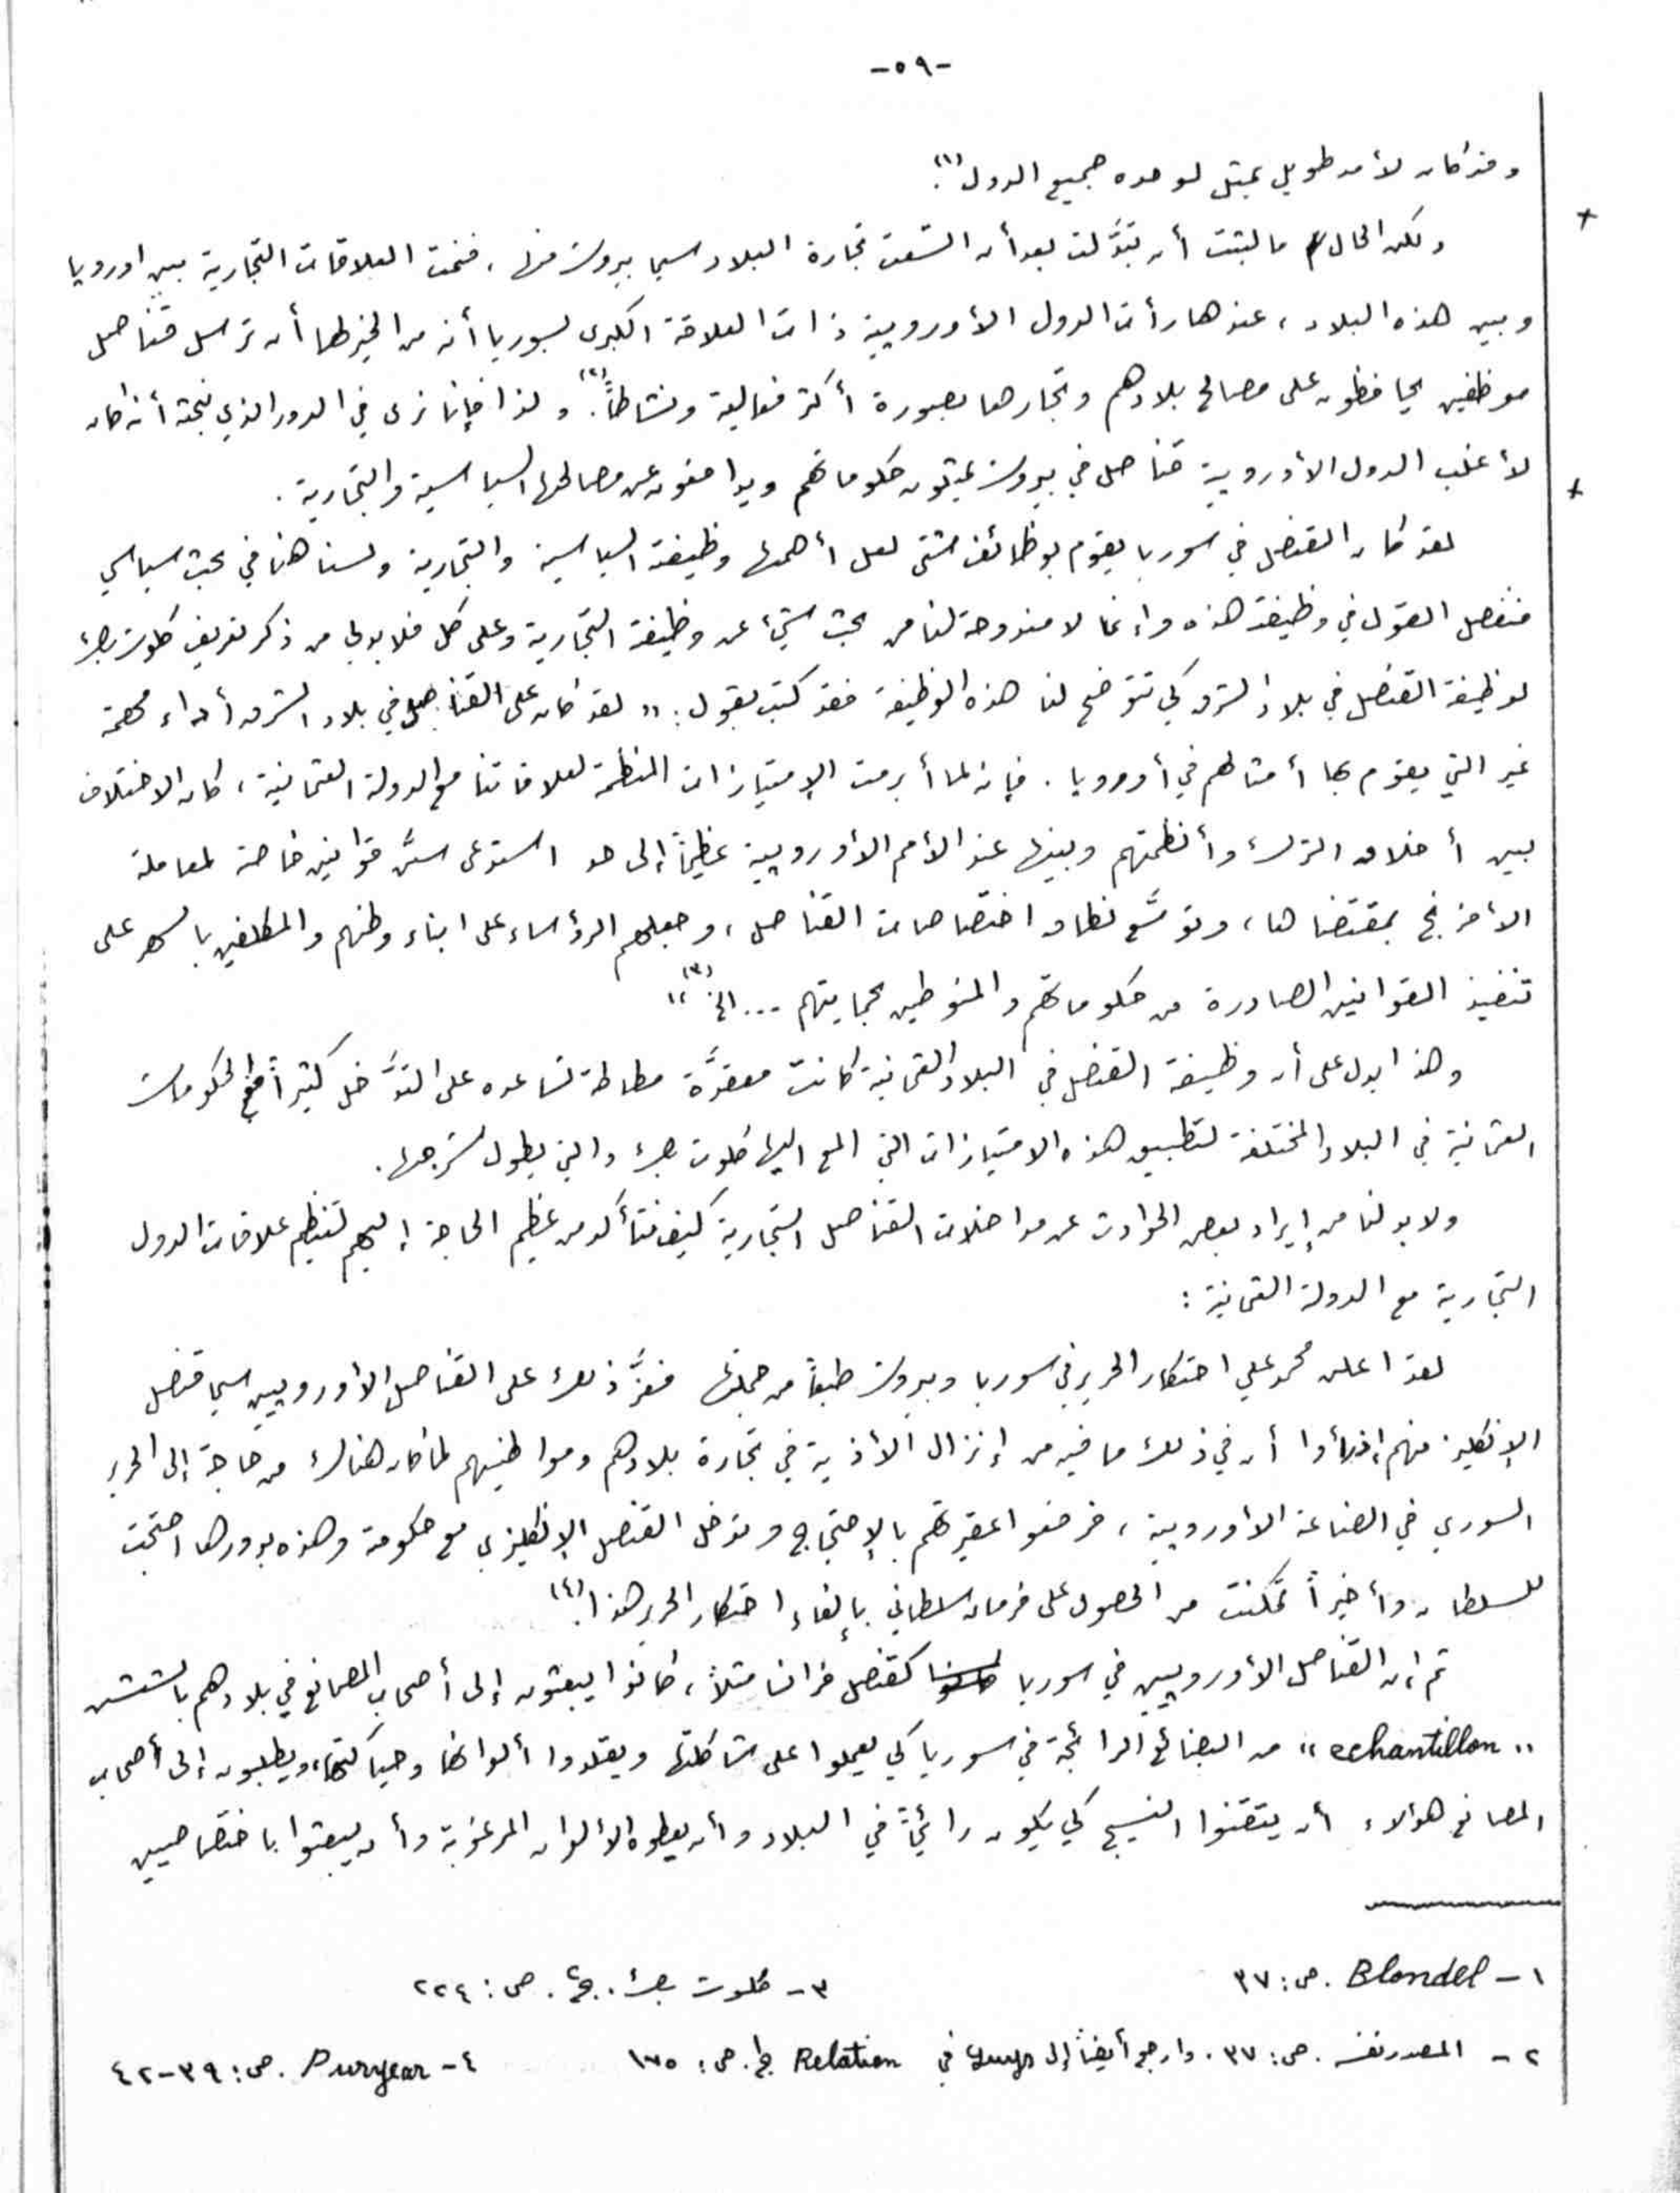 -٥٩-
وقد كان لأمد طويل يمثل لوحده جميع الدول(١).
ولكن الحال ما لبثت أن تبدَّلت بعد أن اتسعت تجارة البلاد سيما بيروت منها، فنمت العلاقات التجارية بين اوروپا
وبين هذه البلاد، عندها رأت الدول الأوروپية ذات العلاقة الكبرى بسوريا أنه من الخير لها أن ترسل قناصل
موظفين يحافظون على مصالح بلادهم وتجارها بصورة أكثر فعالية ونشاطاً(٢). ولذا فإننا نرى في الدور الذي نبحثه أنه كان
لأغلب الدول الأوروپية قناصل في بيروت يمثلون حكوماتهم ويدافعون عن مصالحها السياسية والتجارية.
لقد كان القنصل في سوريا يقوم بوظائف شتى لعل أهمها وظيفته السياسية والتجارية ولسنا هنا في بحث سياسي
فنفصل القول في وظيفته هذه وإنما لا مندوحة لنا من بحث شيء عن وظيفته التجارية وعلى كل فلا بد لي من ذكر تعريف كلوت بك
لوظيفة القنصل في بلاد الشرق كي تتوضح لنا هذه الوظيفة فقد كتب يقول: "لقد كان على القناصل في بلاد الشرق أداء مهمة
غير التي يقوم بها أمثالهم في أوروپا. فإنه لما أبرمت الإمتيازات المنظمة لعلاقاتنا مع الدولة العثمانية، كان الاختلاف
بين أخلاق الترك وأنظمتهم وبينها عند الأمم الأوروپية عظيماً إلى حد استوعى سنَّ قوانين خاصة لمعاملة
الأفرنج بمقتضاها، وتوسَّع نطاق اختصاصات القناصل، وجعلهم الرؤساء على ابناء وطنهم والمكلفين بالسهر على
تنفيذ القوانين الصادرة من حكوماتهم والمنوطين بحمايتهم ... الخ(٣)"
وهذا يدل على أن وظيفة القنصل في البلاد العثمانية كانت معقدَّة مطاطة تساعده على التدَّخل كثيراً مع الحكومات
العثمانية في البلاد المختلفة لتطبيق هذه الامتيازات التي المع اليها كلوت بك والتي يطول شرحها.
ولا بد لنا من إيراد بعض الحوادث عن مداخلات القناصل التجارية كيف نتأكد من عظيم الحاجة إليهم لتنظيم علاقات الدول
التجارية مع الدولة العثمانية:
لقد اعلن محمد علي احتكار الحرير في سوريا وبيروت طبعاً من جملتها فعزَّ ذلك على القناصل الأوروپيين سيما قنصل
الإنكليز منهم إذ رأوا أن في ذلك ما فيه من إنزال الأذية في تجارة بلادهم ومواطنيهم لما كان هناك من حاجة إلى الحرير
السوري في الصناعة الأوروپية، فرفعوا عقيرتهم بالإحتجاج وتدخل القنصل الإنكليزي مع حكومته وهذه بدورها احتجت
للسلطان وأخيراً تمكنت من الحصول على فرمان سلطاني بإلغاء احتكار الحرير هذا(٤).
ثم ان القناصل الأوروپيين في سوريا كقنصل فرانسا مثلاً، كانوا يبعثون إلى أصحاب المصانع في بلادهم بالششن
"echantillon" من البضائع الرائجة في سوريا كي يعملوا على شاكلتها ويقلدوا ألوانها وحياكتها، ويطلبون إلى أصحاب
المصانع هؤلاء أن يتقنوا النسيج كي يكون رائجاً في البلاد وأن يعطوه الألوان المرغوبة وأن يبعثوا باختصاصيين
١- Blondel. ص: ٣٧
٣- كلوت بك. ج٢. ص: ٢٢٤
٢- المصدر نفسه. ص: ٣٧. وارجع أيضاً إلى Guys في Relation ج١. ص: ١٧٥
٤- Puryear. ص: ٣٩-٤٢